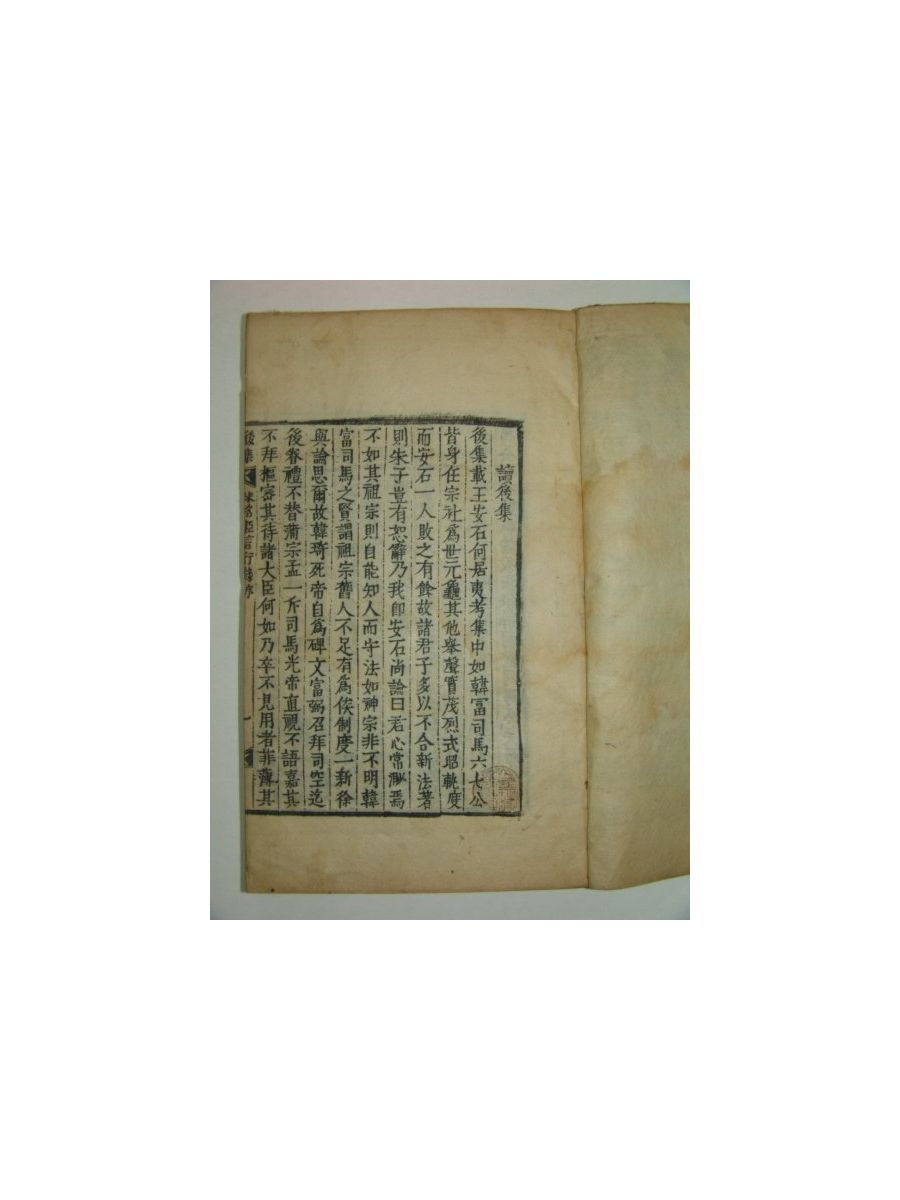 讀後集
後集載王安石何居夷考集中如韓冨司馬六七公
皆身任宗社爲世元龜其他舉聲實茂烈式昭軌度
而安石一人敗之有餘故諸君子多以不合新法著
則朱子豈有恕辭乃我即安石尚論曰君心常𣺌焉
不如其祖宗則自能知人而守法如神宗非不明韓
富司馬之賢謂祖宗舊人不足有爲俟制度一新徐
與論思爾故韓琦死帝自爲碑文富弼召拜司空迄
後眷禮不替蒲宗孟一斥司馬光帝直視不語嘉其
不拜樞密其待諸大臣何如乃卒不見用者菲薄其
後集 宋名臣言行錄序 一